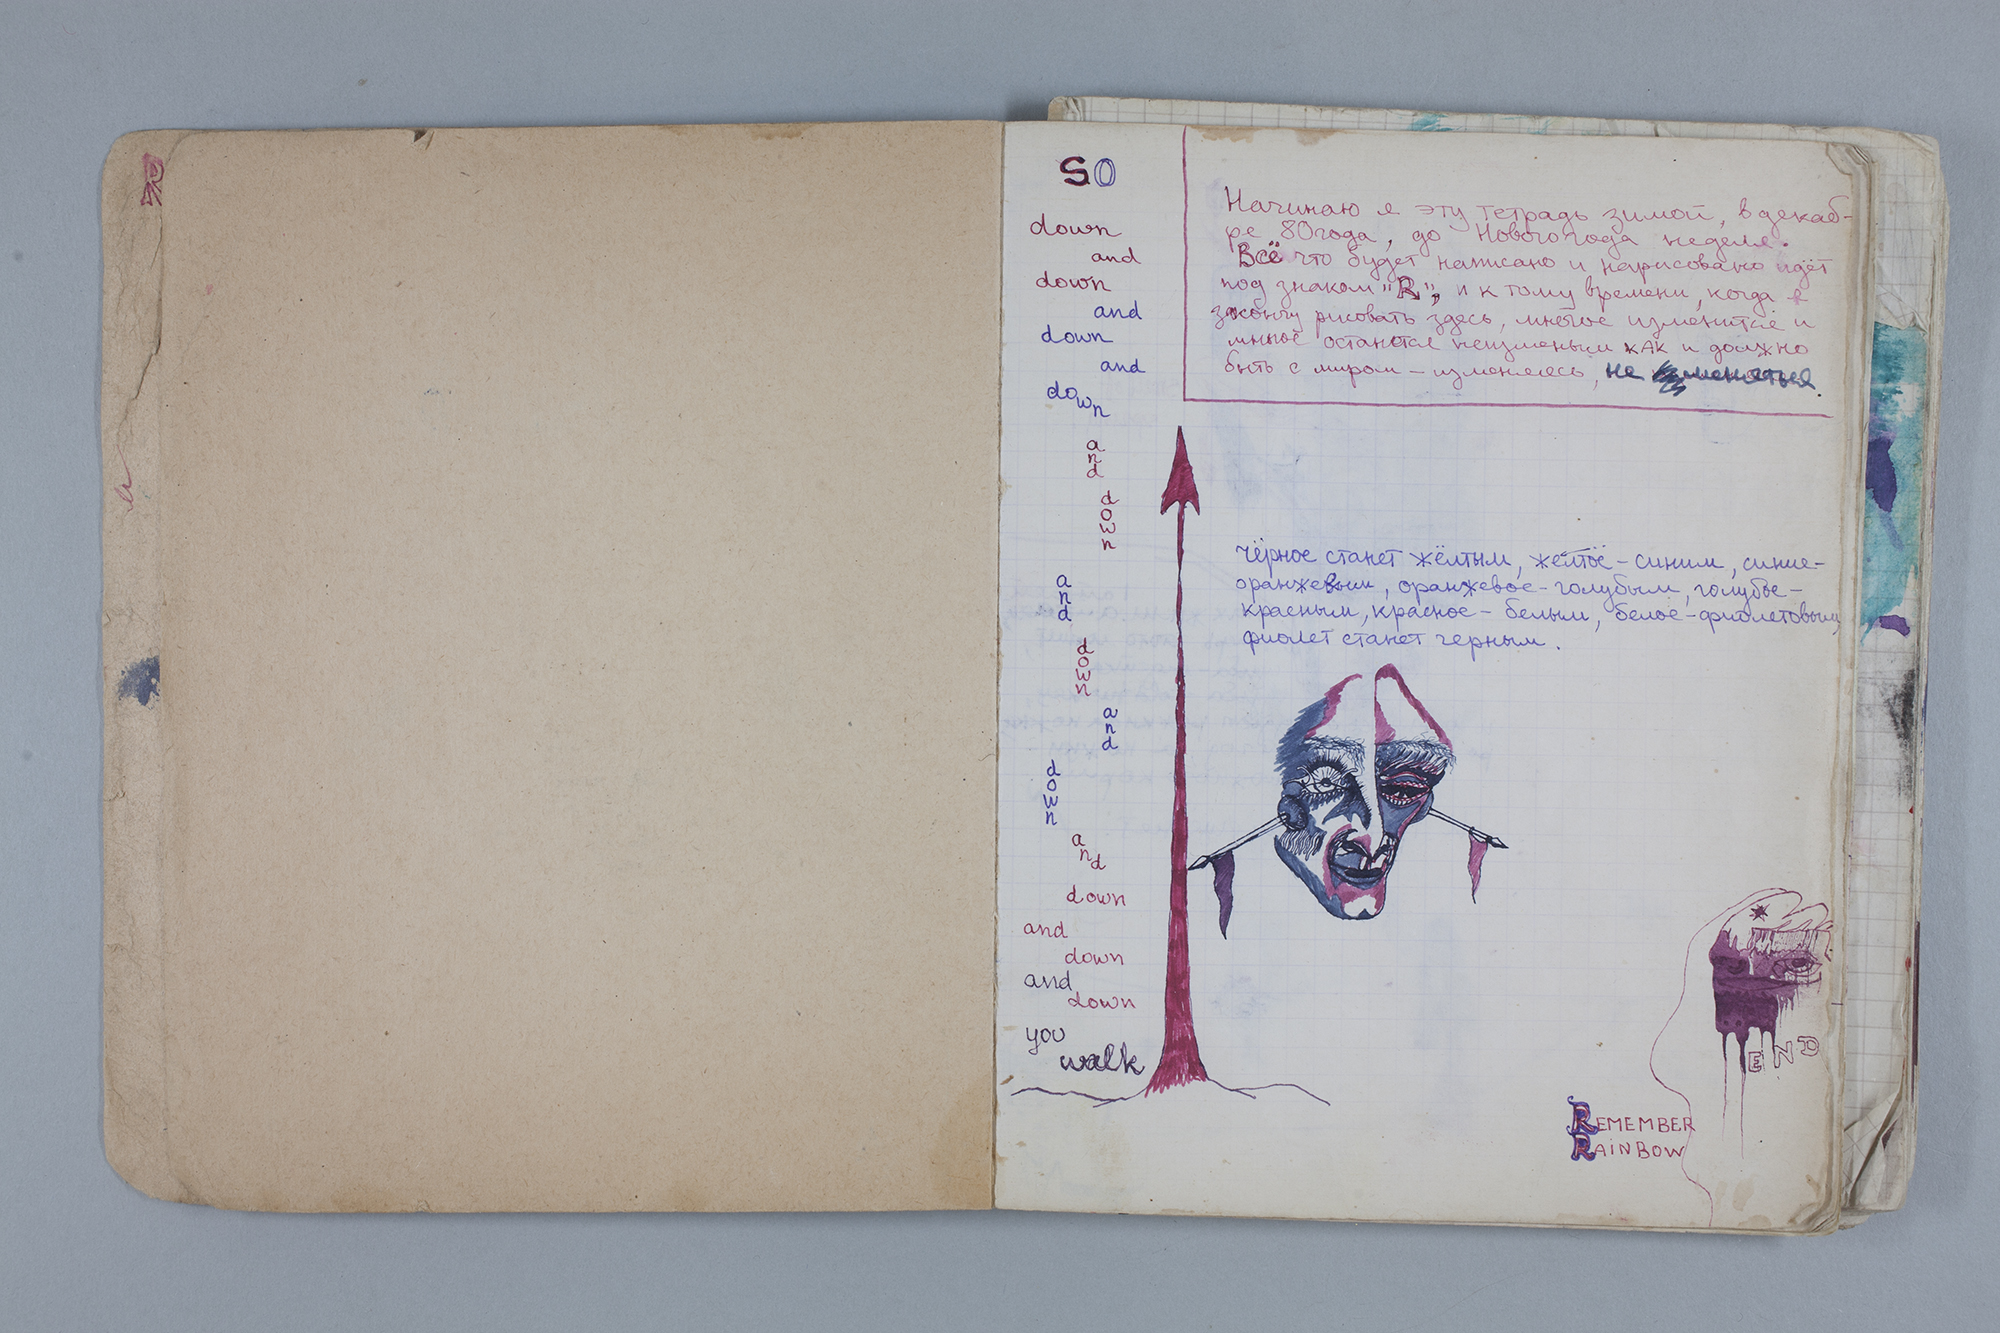 R
SO
down
and
down
and
down
and
down
and
down
and
down
and
down
and
down
and
down
and
down
you
walk
Начинаю я эту тетрадь зимой, в декаб-
ре 80 года, до Нового года неделя.
Всё что будет написано и нарисовано идёт
под знаком "R", и к тому времени, когда я
закончу рисовать здесь, многое изменится и
многое останется неизменым КАК и должно
быть с миром – изменяясь, не меняться.
чёрное станет жёлтым, желтое – синим, синие –
оранжевым, оранжевое – голубым, голубое –
красным, красное – белым, белое – фиолетовым,
фиолет станет черным.
END
REMEMBER
RAINBOW